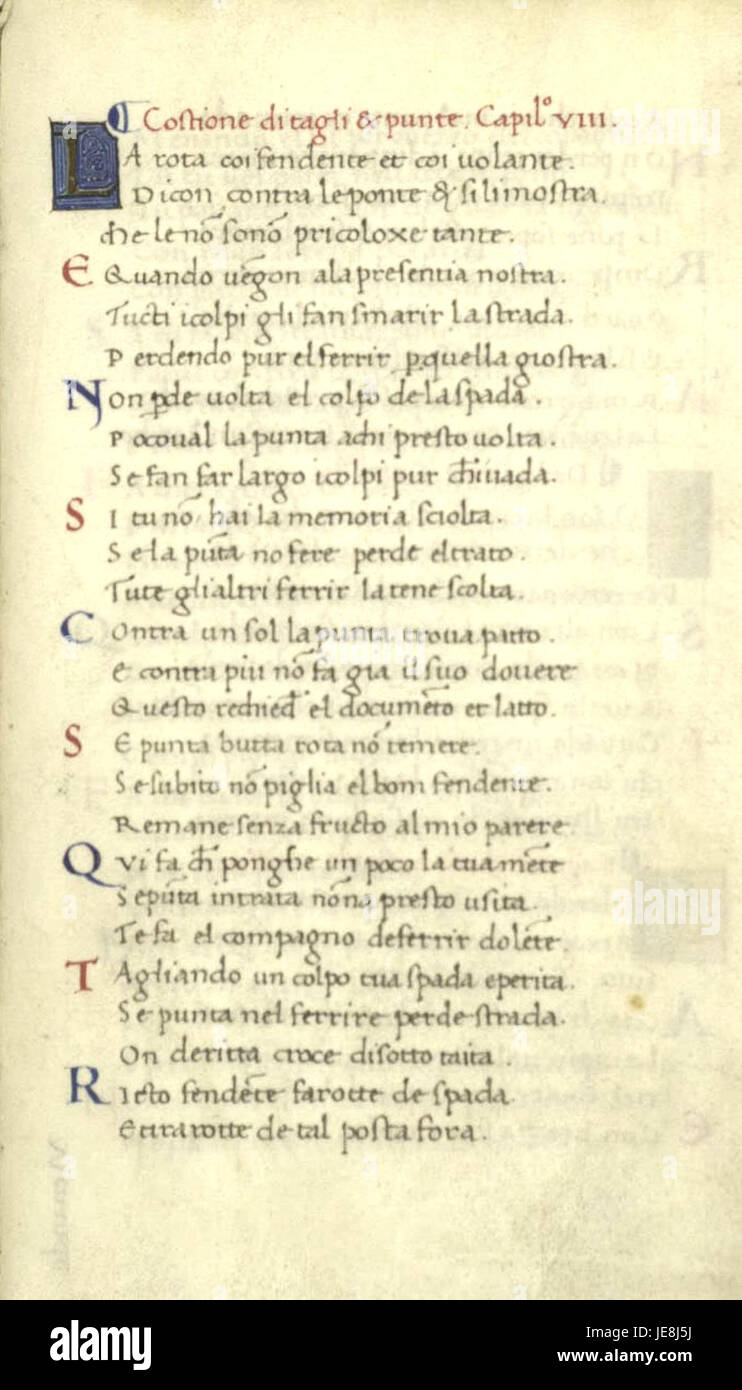 ¶ Costione di tagli & punte. Capil.º VIII.
LA rota coi fendente et coi volante.
Dicon contra le ponte & si li mostra.
che le nō sonō pricoloxe tante.
E Quando vēgon ala presentia nostra.
Tucti icolpi gli fan smarir la strada.
Perdendo pur el ferrir ꝑ quella giostra.
Non ꝑde volta el colpo de la spada.
Poco val la punta achi presto volta.
Se fan far largo icolpi pur ch̄ iuada.
Si tu nō hai la memoria sciolta.
Se la pūta no fere perde el trato.
Tute gli altri ferrir la tene scolta.
Contra un sol la punta trova patto.
e contra piu nō fa gia il suo dovere
Questo rechied̄ el documēto et latto.
Se punta butta rota nō temere.
Se subito nō piglia el bom fendente.
Remane senza fructo al mio parere.
Qvi fa ch̄ ponghe un poco la tua mēte
Se pūta intrata non a presto usita.
Te fa el compagno de ferrir dolēte.
Tagliando un colpo tua spada e perita.
Se punta nel ferrire perde strada.
On deritta croce disotto taita.
Ricto fendēte farotte de spada
E tirarotte de tal posta fora.
alamy
alamy
alamy
Image ID: JE8J5J
www.alamy.com